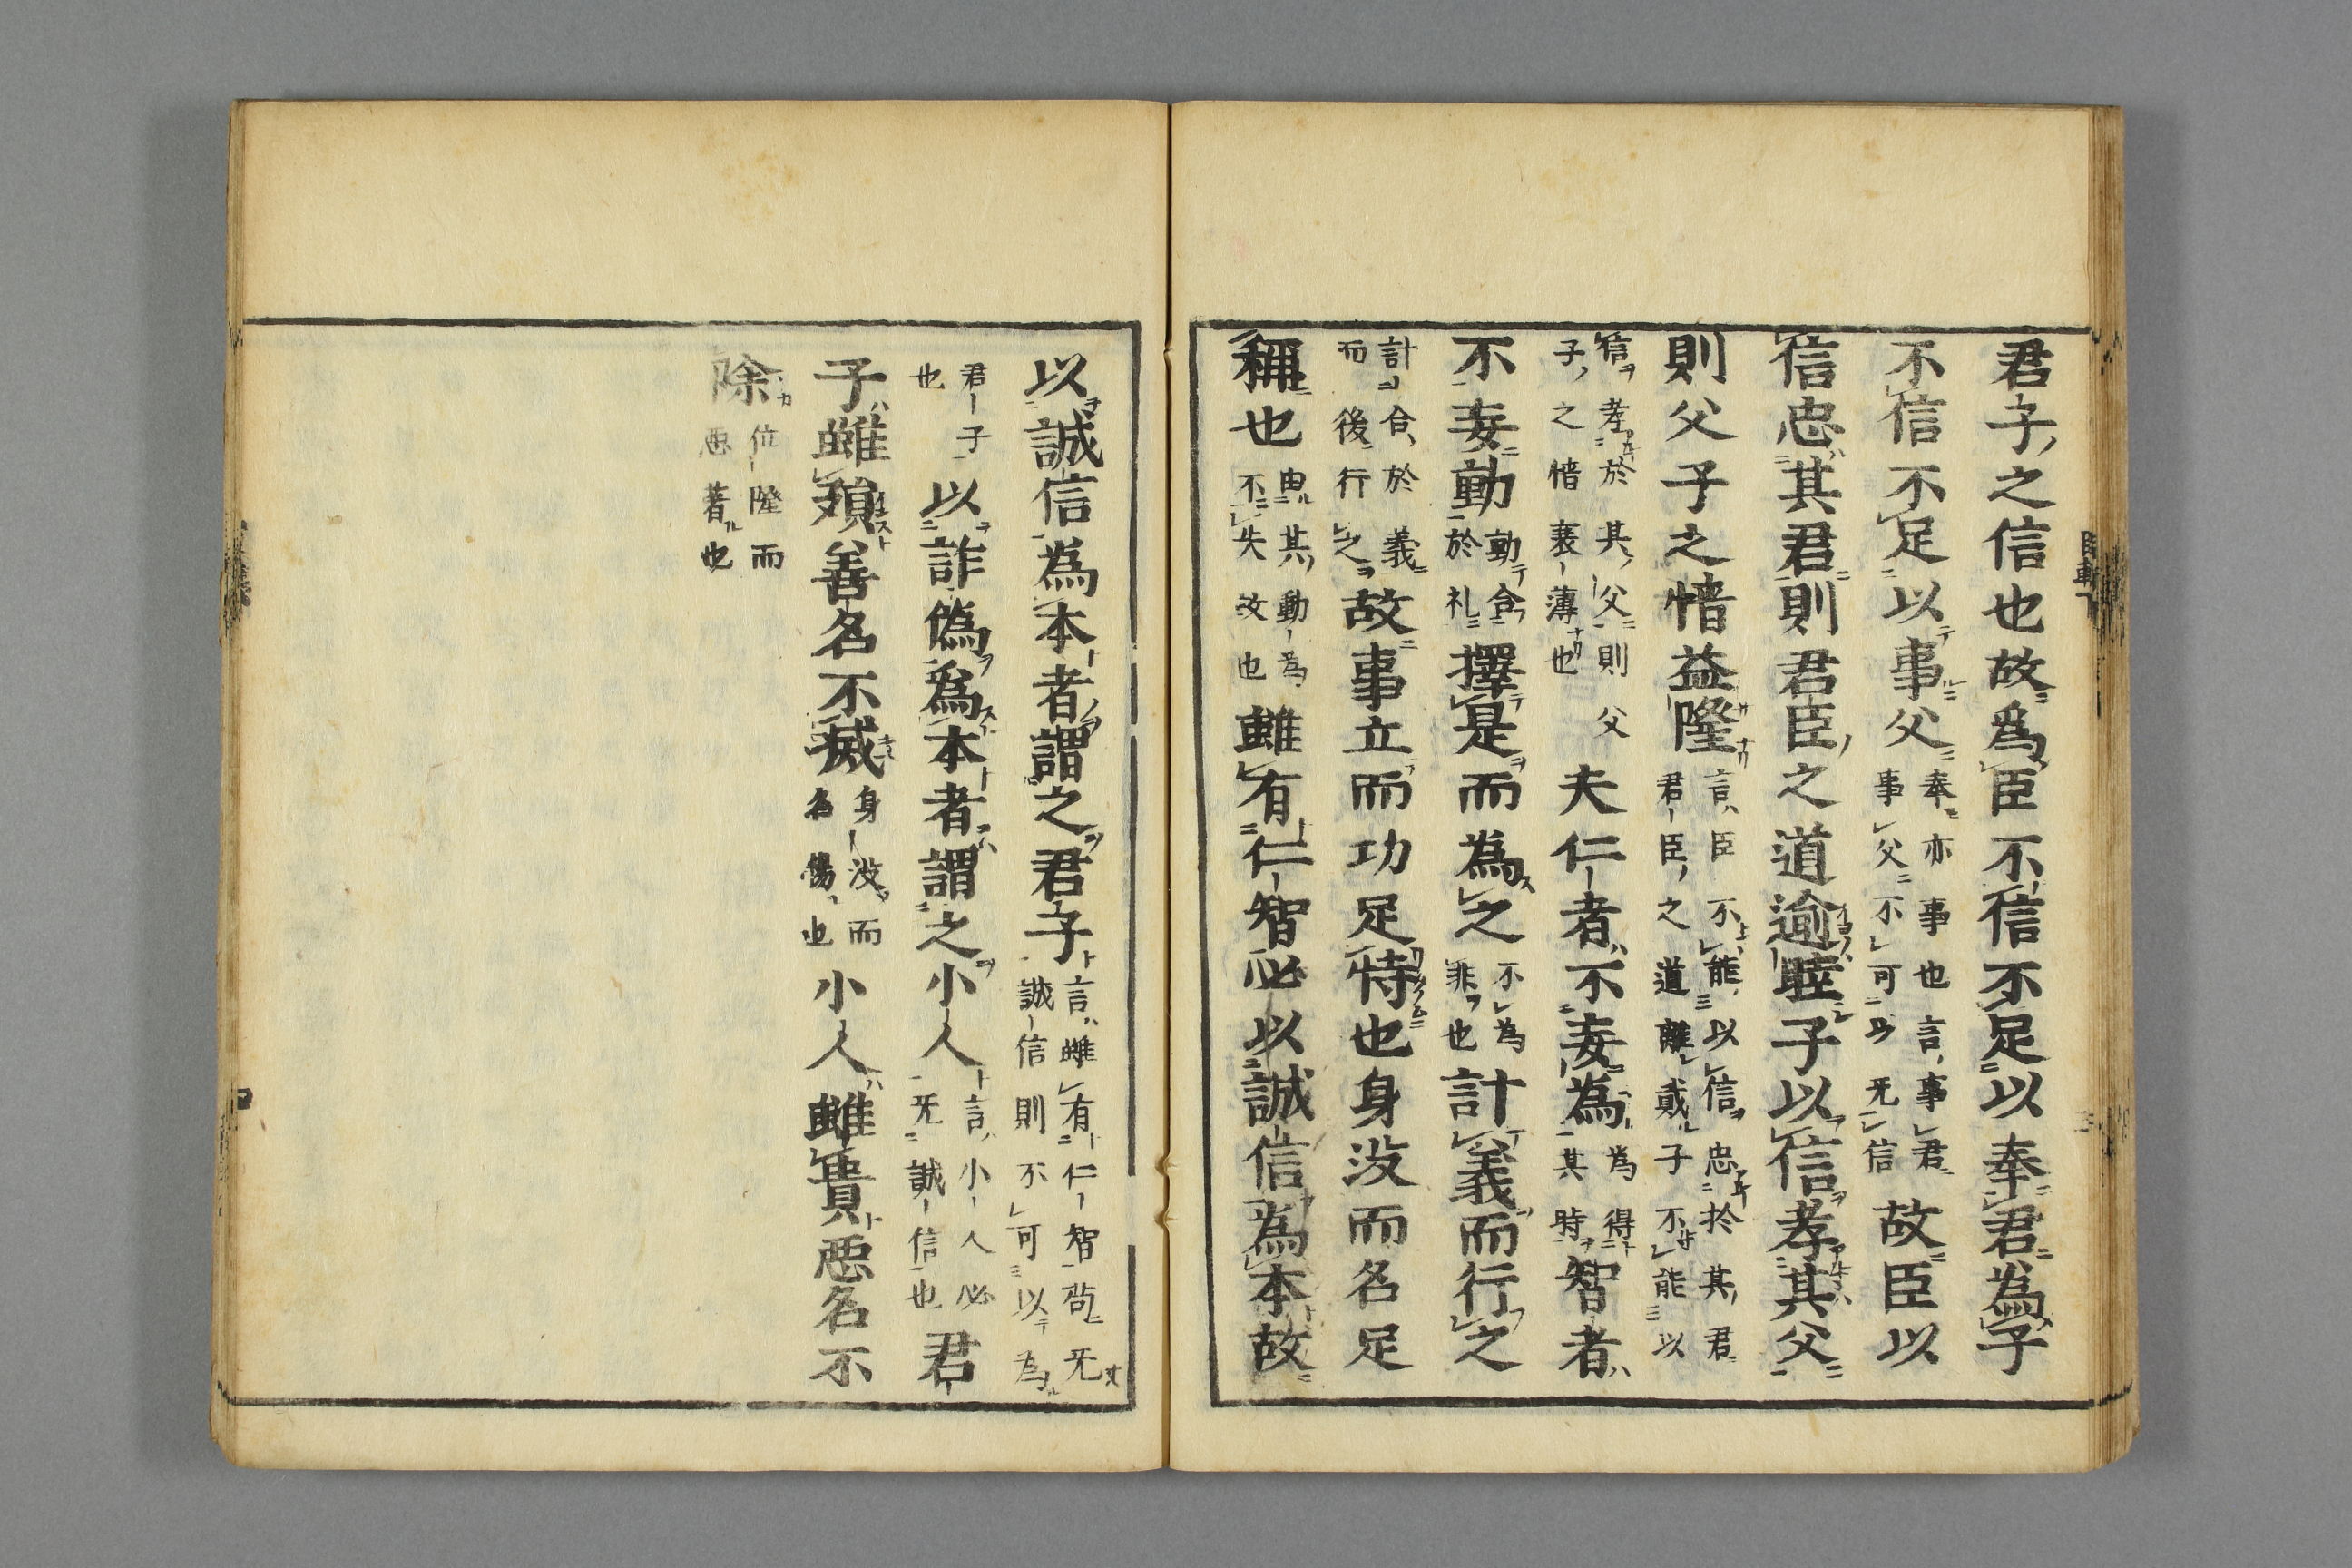 君子之信也故爲臣不信不足以奉君為子
不信不足以事父奉亦事也言事君事父不可以无信故臣以
信忠其君則君臣之道逾睦子以信孝其父
則父子之情益隆言臣不能以信忠於其君君臣之道離貳子不能以
信孝於其父則父子之情衰薄也夫仁者不妄為為得其時智者
不妄動動合於礼擇是而為之不為非也計義而行之
計合於義而後行之故事立而功足恃也身没而名足
稱也思其動為不失故也雖有仁智必以誠信為本故
以誠信為本者謂之君子言雖有仁智苟无誠信則不可以為
君子也以詐偽爲本者謂之小人言小人必无誠信也君
子雖殞善名不滅身没而名傷也小人雖貴惡名不
除位隆而惡著也